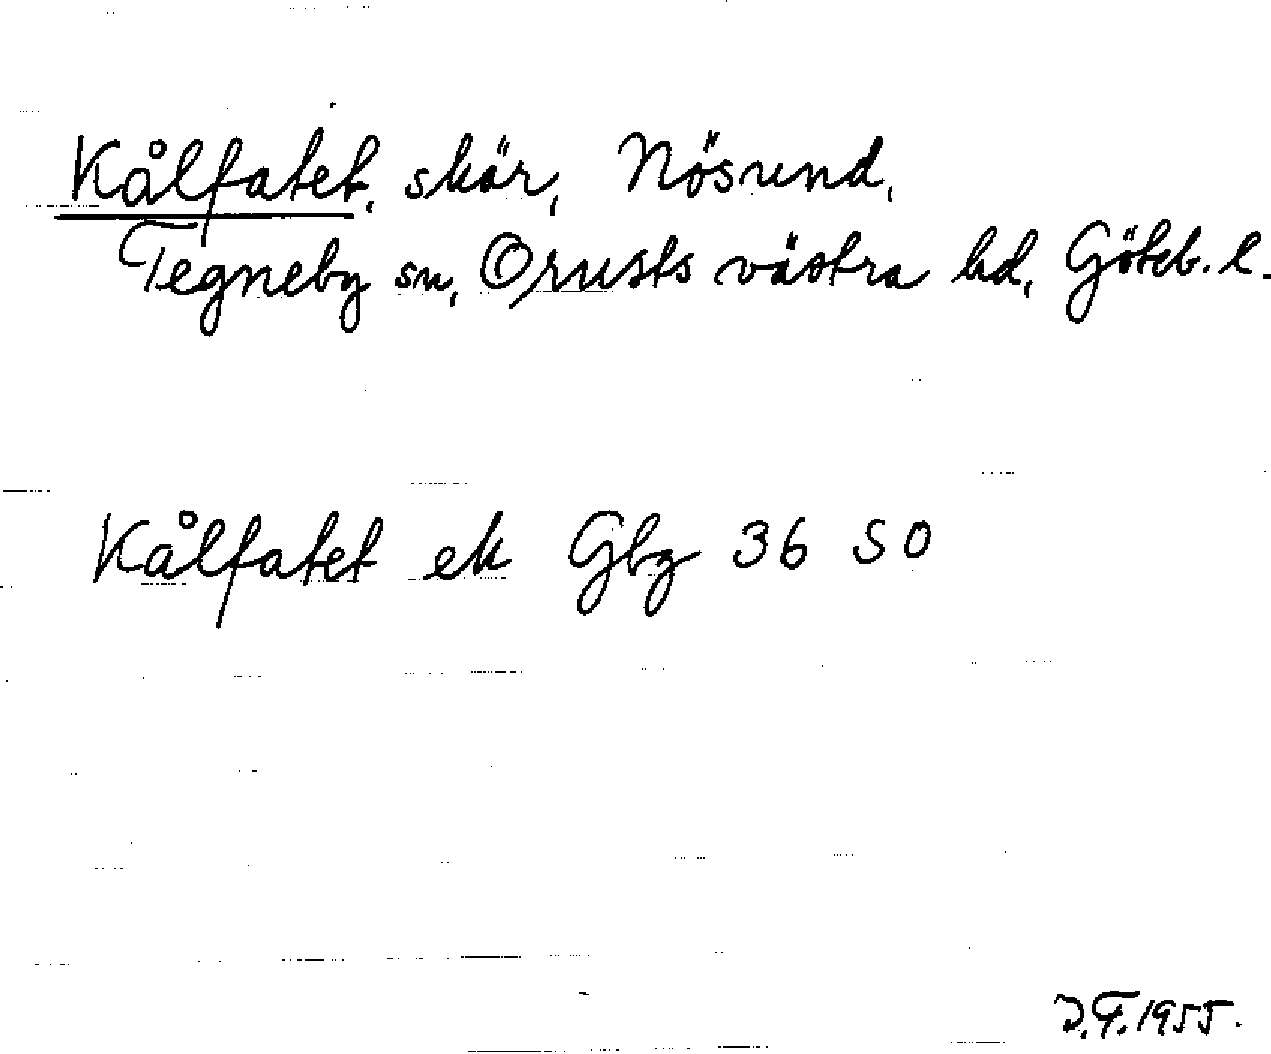 Kålfatet, skär, Nösund,
Tegneby sn, Orusts västra hd, Göteb. l.
Kålfatet ek Gbg 36 SO
D.F. 1955.